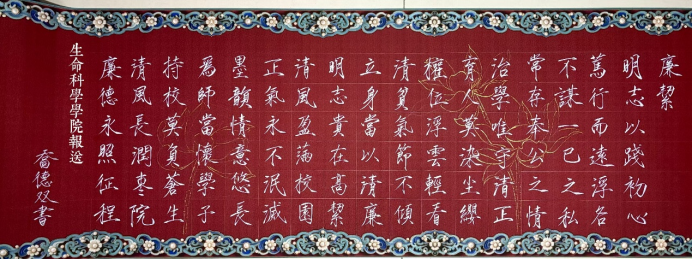 廉潔
明志以踐初心
篤行而遠浮名
不謀一己之私
常存奉公之情
治學唯守清正
育人莫染尘纓
權位浮雲輕看
清貧氣節不傾
立身當以清廉
明志貴在高潔
清風盈滿校園
正氣永不泯滅
墨韻情意悠長
為師當懷學子
持校莫負蒼生
清風長潤枣院
廉德永照征程
生命科學學院報送
喬德双書